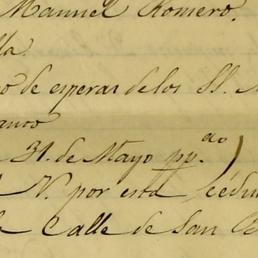 Manuel Romero.
lla.
o de esperar de los Sl. M
anco
31. de Mayo pp.ᵈᵒ)
N. por esta cédu
Calle de San B